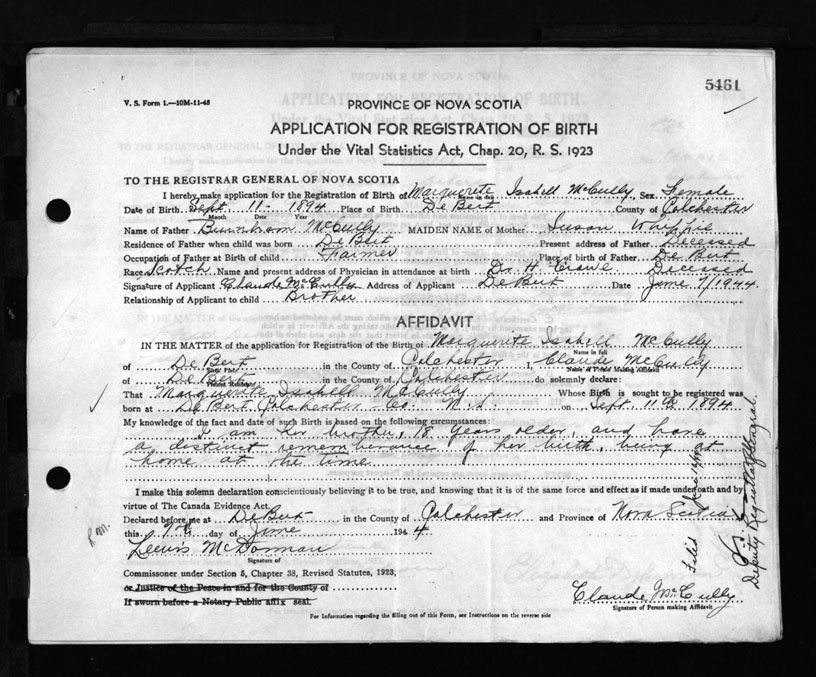 5461
V. S. Form 1.—10M-11-43
PROVINCE OF NOVA SCOTIA
APPLICATION FOR REGISTRATION OF BIRTH
Under the Vital Statistics Act, Chap. 20, R. S. 1923
TO THE REGISTRAR GENERAL OF NOVA SCOTIA
I hereby make application for the Registration of Birth of Marguerite Isabell McCully Sex Female
Name in full
Date of Birth Sept. 11 - 1894 Place of Birth DeBert County of Colchester
Month Day Year
Name of Father McCully MAIDEN NAME of Mother Susan
Residence of Father when child was born DeBert Present address of Father Deceased
Occupation of Father at Birth of child Farmer Place of birth of Father DeBert
Race Scotch Name and present address of Physician in attendance at birth Dr. H. Crowe Deceased
Signature of Applicant Claude McCully Address of Applicant DeBert Date June 7/1944
Relationship of Applicant to child Brother
AFFIDAVIT
IN THE MATTER of the application for Registration of the Birth of Marguerite Isabell McCully
Name in full
of DeBert in the County of Colchester I, Claude McCully
Birth Place Name of Person Making Affidavit
of DeBert in the County of Colchester do solemnly declare:
Present Residence
That Marguerite Isabell McCully Whose Birth is sought to be registered was
born at DeBert Colchester Co. N.S. on Sept. 11th 1894
My knowledge of the fact and date of such Birth is based on the following circumstances:
I am her brother, 18 years older, and have
a distinct remembrance of her birth, being at
home at the time
I make this solemn declaration conscientiously believing it to be true, and knowing that it is of the same force and effect as if made under oath and by
virtue of The Canada Evidence Act.
Declared before me at DeBert in the County of Colchester and Province of Nova Scotia
this 7th day of June 1944
Lewis McDorman
Signature of
Commissioner under Section 5, Chapter 38, Revised Statutes, 1923,
or Justice of the Peace in and for the County of
If sworn before a Notary Public affix seal.
Claude McCully
Signature of Person making Affidavit
For Information regarding the filling out of this Form, see Instructions on the reverse side
Filed June
Deputy Registrar General